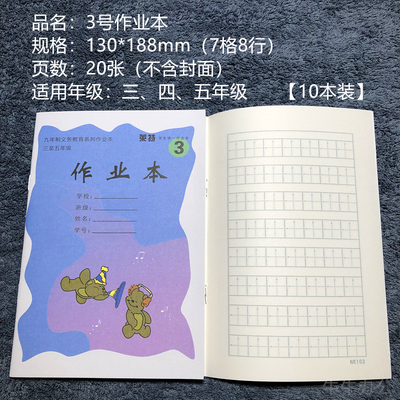 品名：3号作业本
规格：130*188mm（7格8行）
页数：20张（不含封面）
适用年级：三、四、五年级 【10本装】
九年制义务教育系列作业本
三至五年级
3
作业本
学校：
班级：
姓名：
学号：